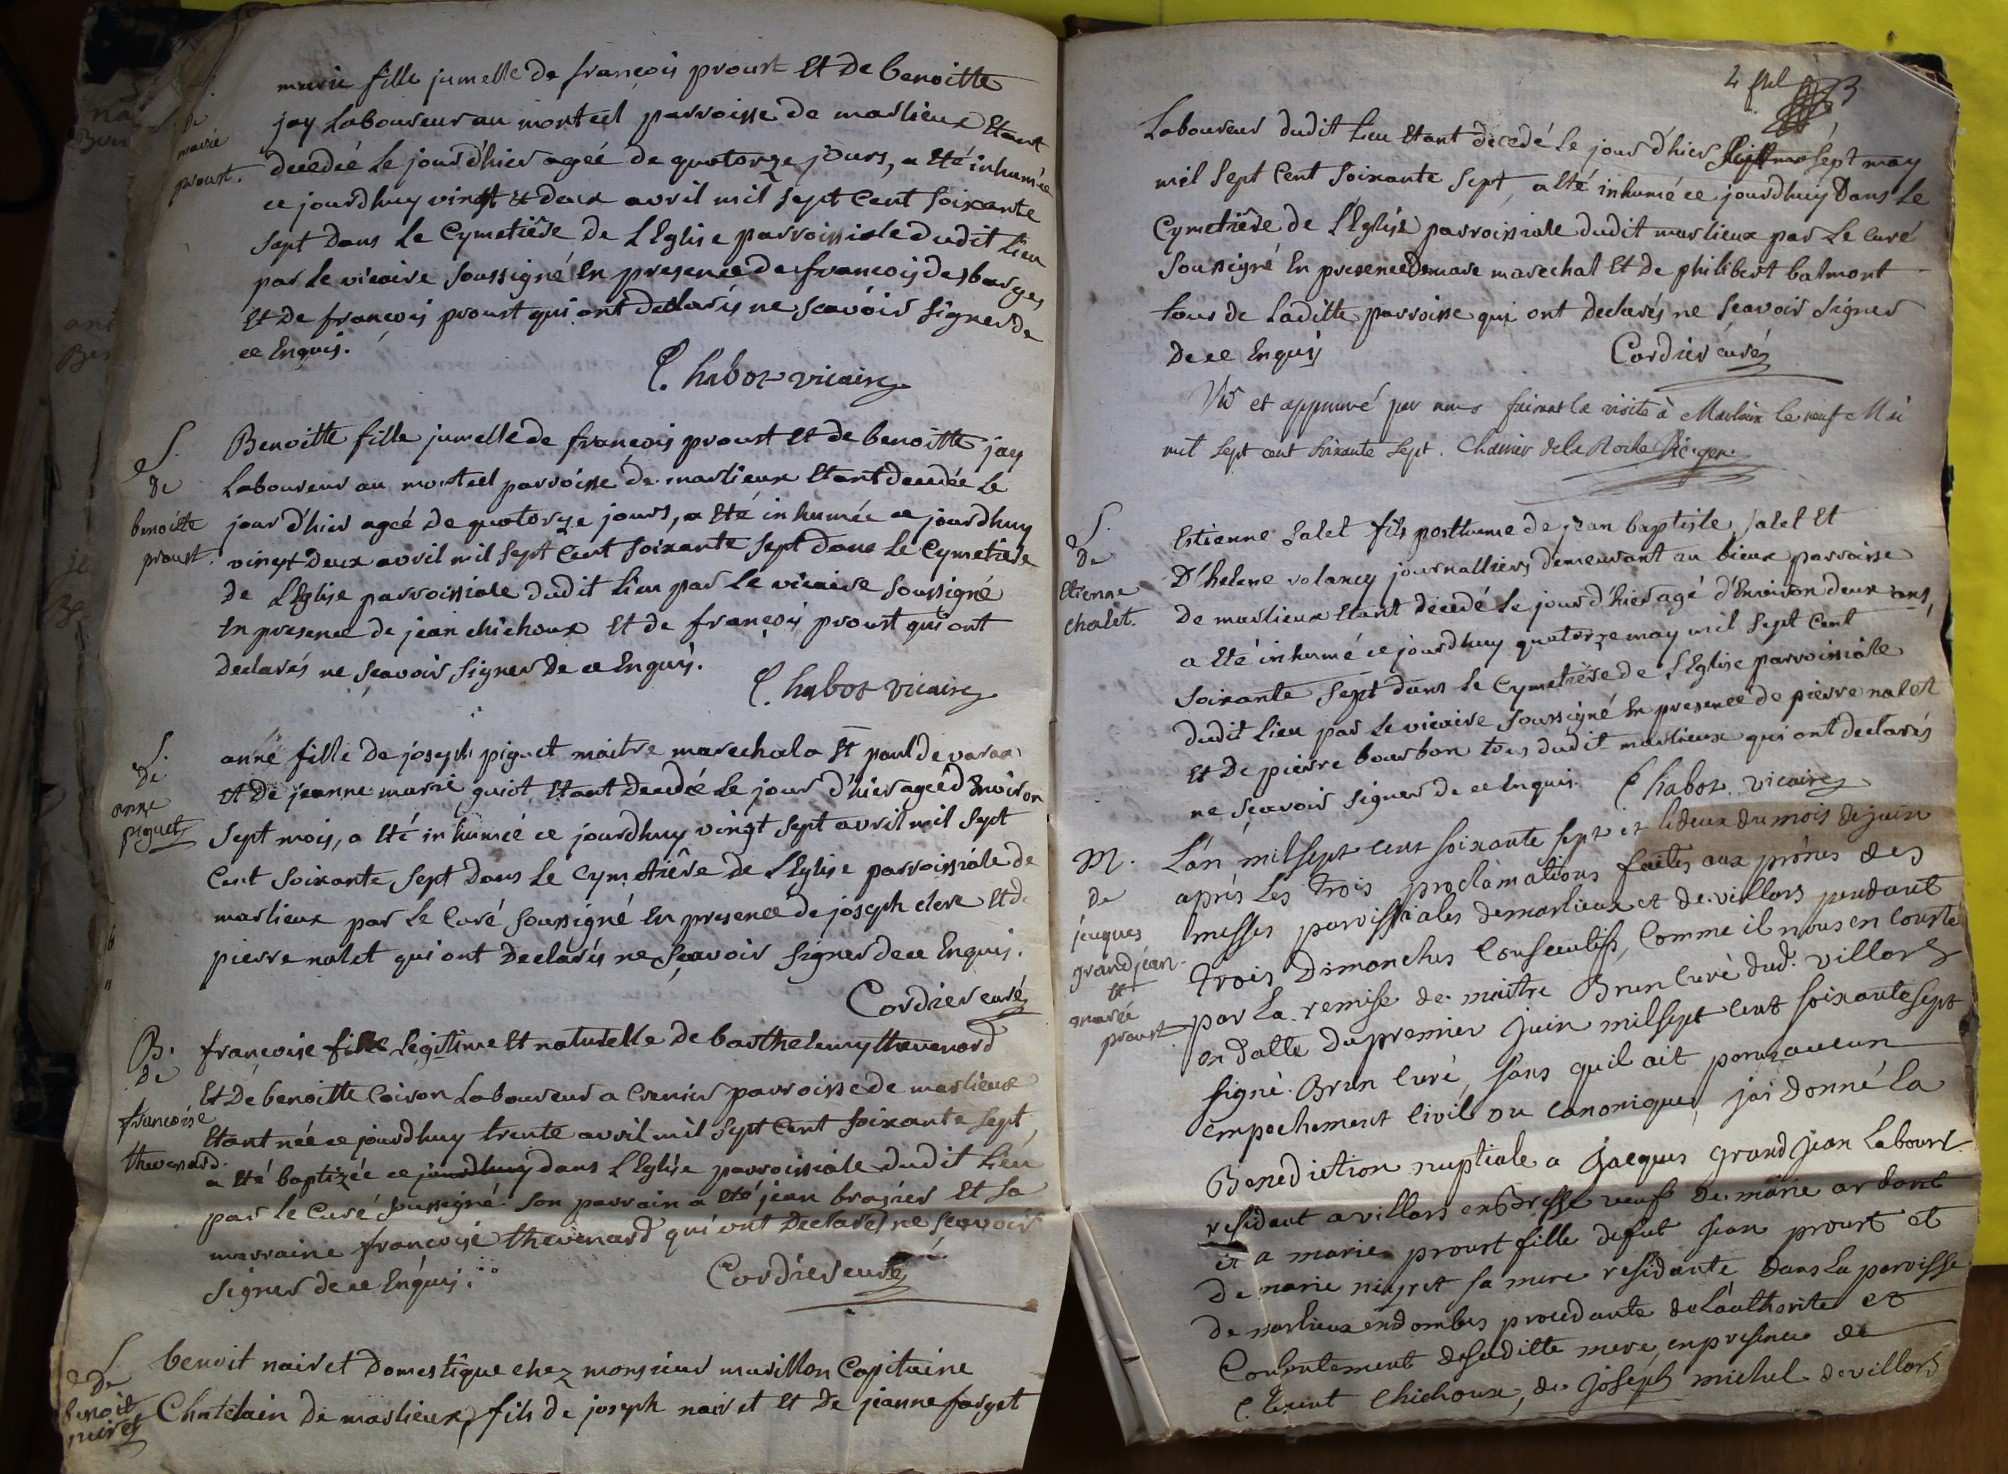 de
marie
proust.
marie fille jumelle de françois proust Et de benoitte
jay Laboureur au monteel parroisse de marlieux Etant
decedée Le jour d'hier ageé de quatorze jours, a Eté inhumée
ce jourdhuy vingt et deux avril mil sept Cent soixante
sept dans Le Cymetiêre de L'Eglise parroissiale dudit Lieu
par Le vicaire soussigné En presence de francois desbarges
Et De francois proust qui ont declarés ne scavoir signer de
ce Enquis.
Chabot vicaire
S.
De
benoitte
proust.
Benoitte fille jumelle de françois proust Et de benoitte jay
Laboureur au monteel parroisse de marlieux Etant decedée Le
jour d'hier ageé de quatorze jours, a Eté inhumée ce jourdhuy
vingt deux avril mil sept Cent soixante sept dans Le Cymetiere
de L'Eglise parroissiale dudit Lieu par Le vicaire soussigné
En presence de jean chichoux Et de françois proust qui ont
declarés ne sçavoir signer de ce Enquis.
Chabot vicaire
S.
De
anne
piguet
anne fille de joseph piguet maitre marechal a St paul de varax
et De jeanne marie guiot Etant decedée Le jour d'hier ageé d'Environ
sept mois, a Eté inhumée ce jourdhuy vingt sept avril mil sept
Cent soixante sept dans Le Cymetiêre de L'Eglise parroissiale de
marlieux par Le Curé soussigné En presence de joseph clerc Et de
pierre nalet qui ont Declarés ne sçavoir signer de ce Enquis.
Cordier curé
B.
De
francoise
thevenard.
francoise fille Legitime Et naturelle de barthelemy thevenard
Et De benoitte Coison Laboureur a Crenier parroisse de marlieux
Etant née ce jourdhuy trente avril mil sept Cent soixante sept
a Eté baptizée ce jourdhuy dans L'Eglise parroissiale dudit Lieu
par Le Curé soussigné. son parrain a Eté jean brasier Et sa
marraine françoise thevenard qui ont Declarés ne sçavoir
signer de ce Enquis.
Cordier curé
S.
De
benoit
nairet
benoit nairet Domestique chez monsieur marillon Capitaine
Chatelain De marlieux, fils de joseph nairet Et De jeanne farget
Laboureur dudit Lieu Etant decedé Le jour d'hier sept may
mil sept Cent soixante sept, a Eté inhumé ce jourdhuy Dans Le
Cymetiêre de L'Eglise parroissiale dudit marlieux par Le Curé
soussigné En presence de marc marechal Et de philibert balmont
tous de Laditte parroisse qui ont Declarés ne sçavoir signer
De ce Enquis
Cordier curé
Vu et approuvé par nous faisant la visite à Marlieux le neuf Mai
mil sept cent soixante sept. Charrier de la Roche
S.
De
Etienne
chalet.
Estienne Salet fils posthume de jean baptiste Salet Et
D'helene volancy journalliers demeurant au bieux parroisse
De marlieux Etant decedé Le jour d'hier agé d'Environ deux ans,
a Eté inhumé ce jourdhuy quatorze may mil sept Cent
soixante sept dans Le Cymetiêre de L'Eglise parroissiale
dudit Lieu par Le vicaire soussigné En presence de pierre nalet
Et De pierre bourbon tous dudit marlieux qui ont declarés
ne sçavoir signer de ce Enquis. Chabot vicaire
M.
de
jacques
grandjean
et
marie
proust
L'an mil sept cent soixante sept et le deux du mois de juin
après Les trois proclamations faites aux prônes des
messes paroissiales de marlieux et de villars pendant
trois Dimanches Consecutifs, Comme il nous en Conste
par La remise de maitre Brun Curé dud. villars
en datte du premier juin mil sept cent soixante sept
signé Brun Curé, sans qu'il ait paru aucun
empechement Civil ou Canonique, j'ai donné La
Benediction nuptiale a Jacques grand jean Labour.
residant a villars en Bresse veuf de marie ardant
et a marie proust fille de fut jean proust et
de marie sa mere residante dans La paroisse
de marlieux en dombes procedante de L'authorité et
Consentement de saditte mere en presence de
Chichoux, de Joseph michel de villars